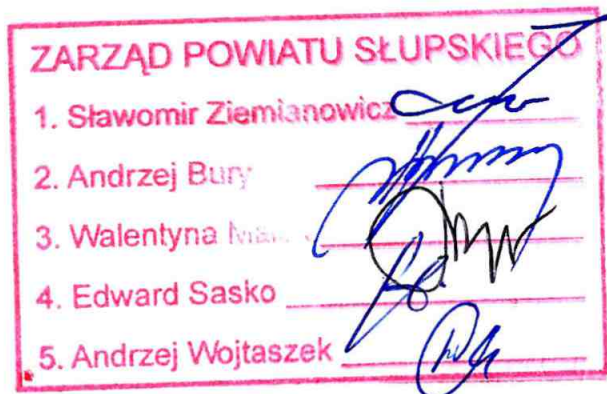 ZARZĄD POWIATU SŁUPSKIEGO
1. Sławomir Ziemianowicz
2. Andrzej Bury
3. Walentyna
4. Edward Sasko
5. Andrzej Wojtaszek